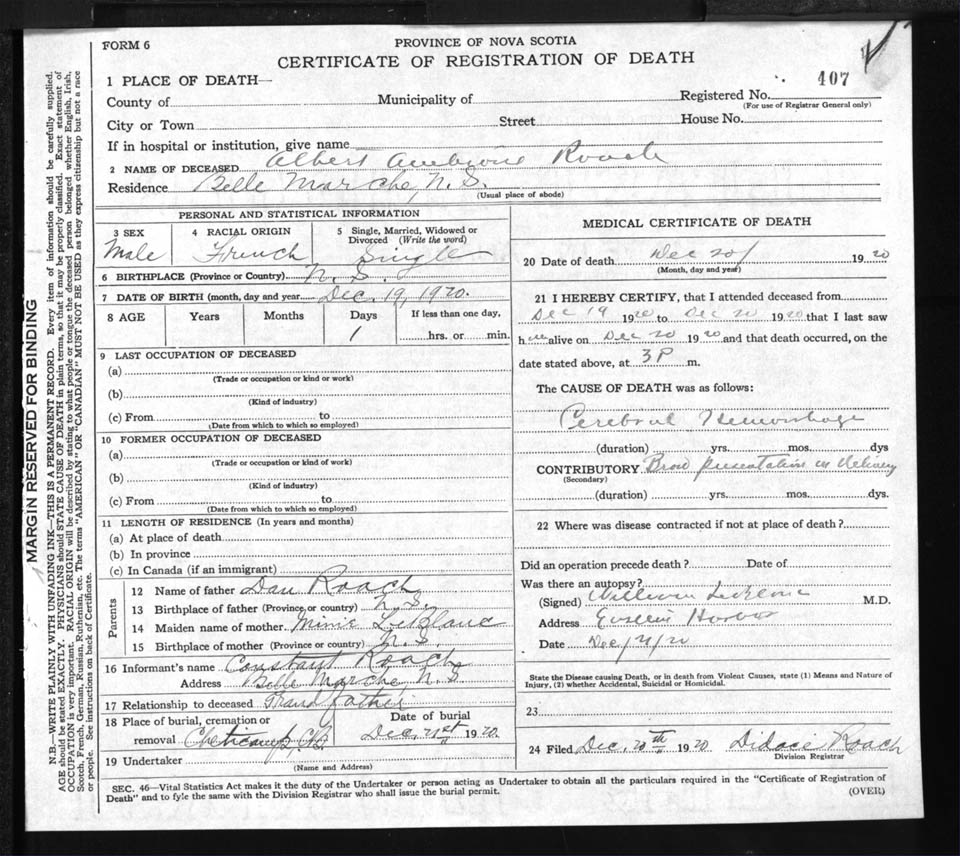 FORM 6
PROVINCE OF NOVA SCOTIA
CERTIFICATE OF REGISTRATION OF DEATH
1 PLACE OF DEATH—
Registered No. 407
(For use of Registrar General only)
County of Municipality of
City or Town Street House No.
If in hospital or institution, give name
2 NAME OF DECEASED Albert Ambroise Roach
Residence Belle Marche, N. S.
(Usual place of abode)
PERSONAL AND STATISTICAL INFORMATION
3 SEX Male
4 RACIAL ORIGIN French
5 Single, Married, Widowed or Divorced (Write the word) Single
6 BIRTHPLACE (Province or Country) N. S.
7 DATE OF BIRTH (month, day and year) Dec. 19, 1920.
8 AGE Years Months Days 1
If less than one day, hrs. or min.
9 LAST OCCUPATION OF DECEASED
(a)
(Trade or occupation or kind or work)
(b)
(Kind of industry)
(c) From to
(Date from which to which so employed)
10 FORMER OCCUPATION OF DECEASED
(a)
(Trade or occupation or kind of work)
(b)
(Kind of industry)
(c) From to
(Date from which to which so employed)
11 LENGTH OF RESIDENCE (In years and months)
(a) At place of death
(b) In province
(c) In Canada (if an immigrant)
Parents
12 Name of father Dan Roach
13 Birthplace of father (Province or country) N. S.
14 Maiden name of mother Minie LeBlanc
15 Birthplace of mother (Province or country) N. S.
16 Informant's name Constant Roach
Address Belle Marche, N. S
17 Relationship to deceased Grand father
18 Place of burial, cremation or removal Cheticamp C.B.
Date of burial Dec. 21st 1920.
19 Undertaker
(Name and Address)
MEDICAL CERTIFICATE OF DEATH
20 Date of death Dec 20/ 1920
(Month, day and year)
21 I HEREBY CERTIFY, that I attended deceased from
Dec 19 1920 to Dec 20 1920 that I last saw
h alive on Dec 20 1920 and that death occurred, on the
date stated above, at 3 P m.
The CAUSE OF DEATH was as follows:
Cerebral Hemorrhage
(duration) yrs. mos. dys
CONTRIBUTORY Brow presentation in delivery
(Secondary)
(duration) yrs. mos. dys.
22 Where was disease contracted if not at place of death?
Did an operation precede death? Date of
Was there an autopsy?
(Signed) William LeBlanc M.D.
Address Eastern Harbor
Date Dec/21/20
State the Disease causing Death, or in death from Violent Causes, state (1) Means and Nature of
Injury, (2) whether Accidental, Suicidal or Homicidal.
23
24 Filed Dec. 20th 1920 Didace Roach
Division Registrar
SEC. 46—Vital Statistics Act makes it the duty of the Undertaker or person acting as Undertaker to obtain all the particulars required in the "Certificate of Registration of
Death" and to fyle the same with the Division Registrar who shall issue the burial permit.
(OVER)
MARGIN RESERVED FOR BINDING
N.B.—WRITE PLAINLY WITH UNFADING INK—THIS IS A PERMANENT RECORD. Every item of information should be carefully supplied.
AGE should be stated EXACTLY. PHYSICIANS should STATE CAUSE OF DEATH in plain terms, so that it may be properly classified. Exact statement of
OCCUPATION is very important. RACIAL ORIGIN will be described by stating to what people or tongue the deceased person belonged whether English, Irish,
Scotch, French, German, Russian, Ruthenian, etc. The terms "AMERICAN" OR "CANADIAN" MUST NOT BE USED as they express citizenship but not a race
or people. See instructions on back of Certificate.